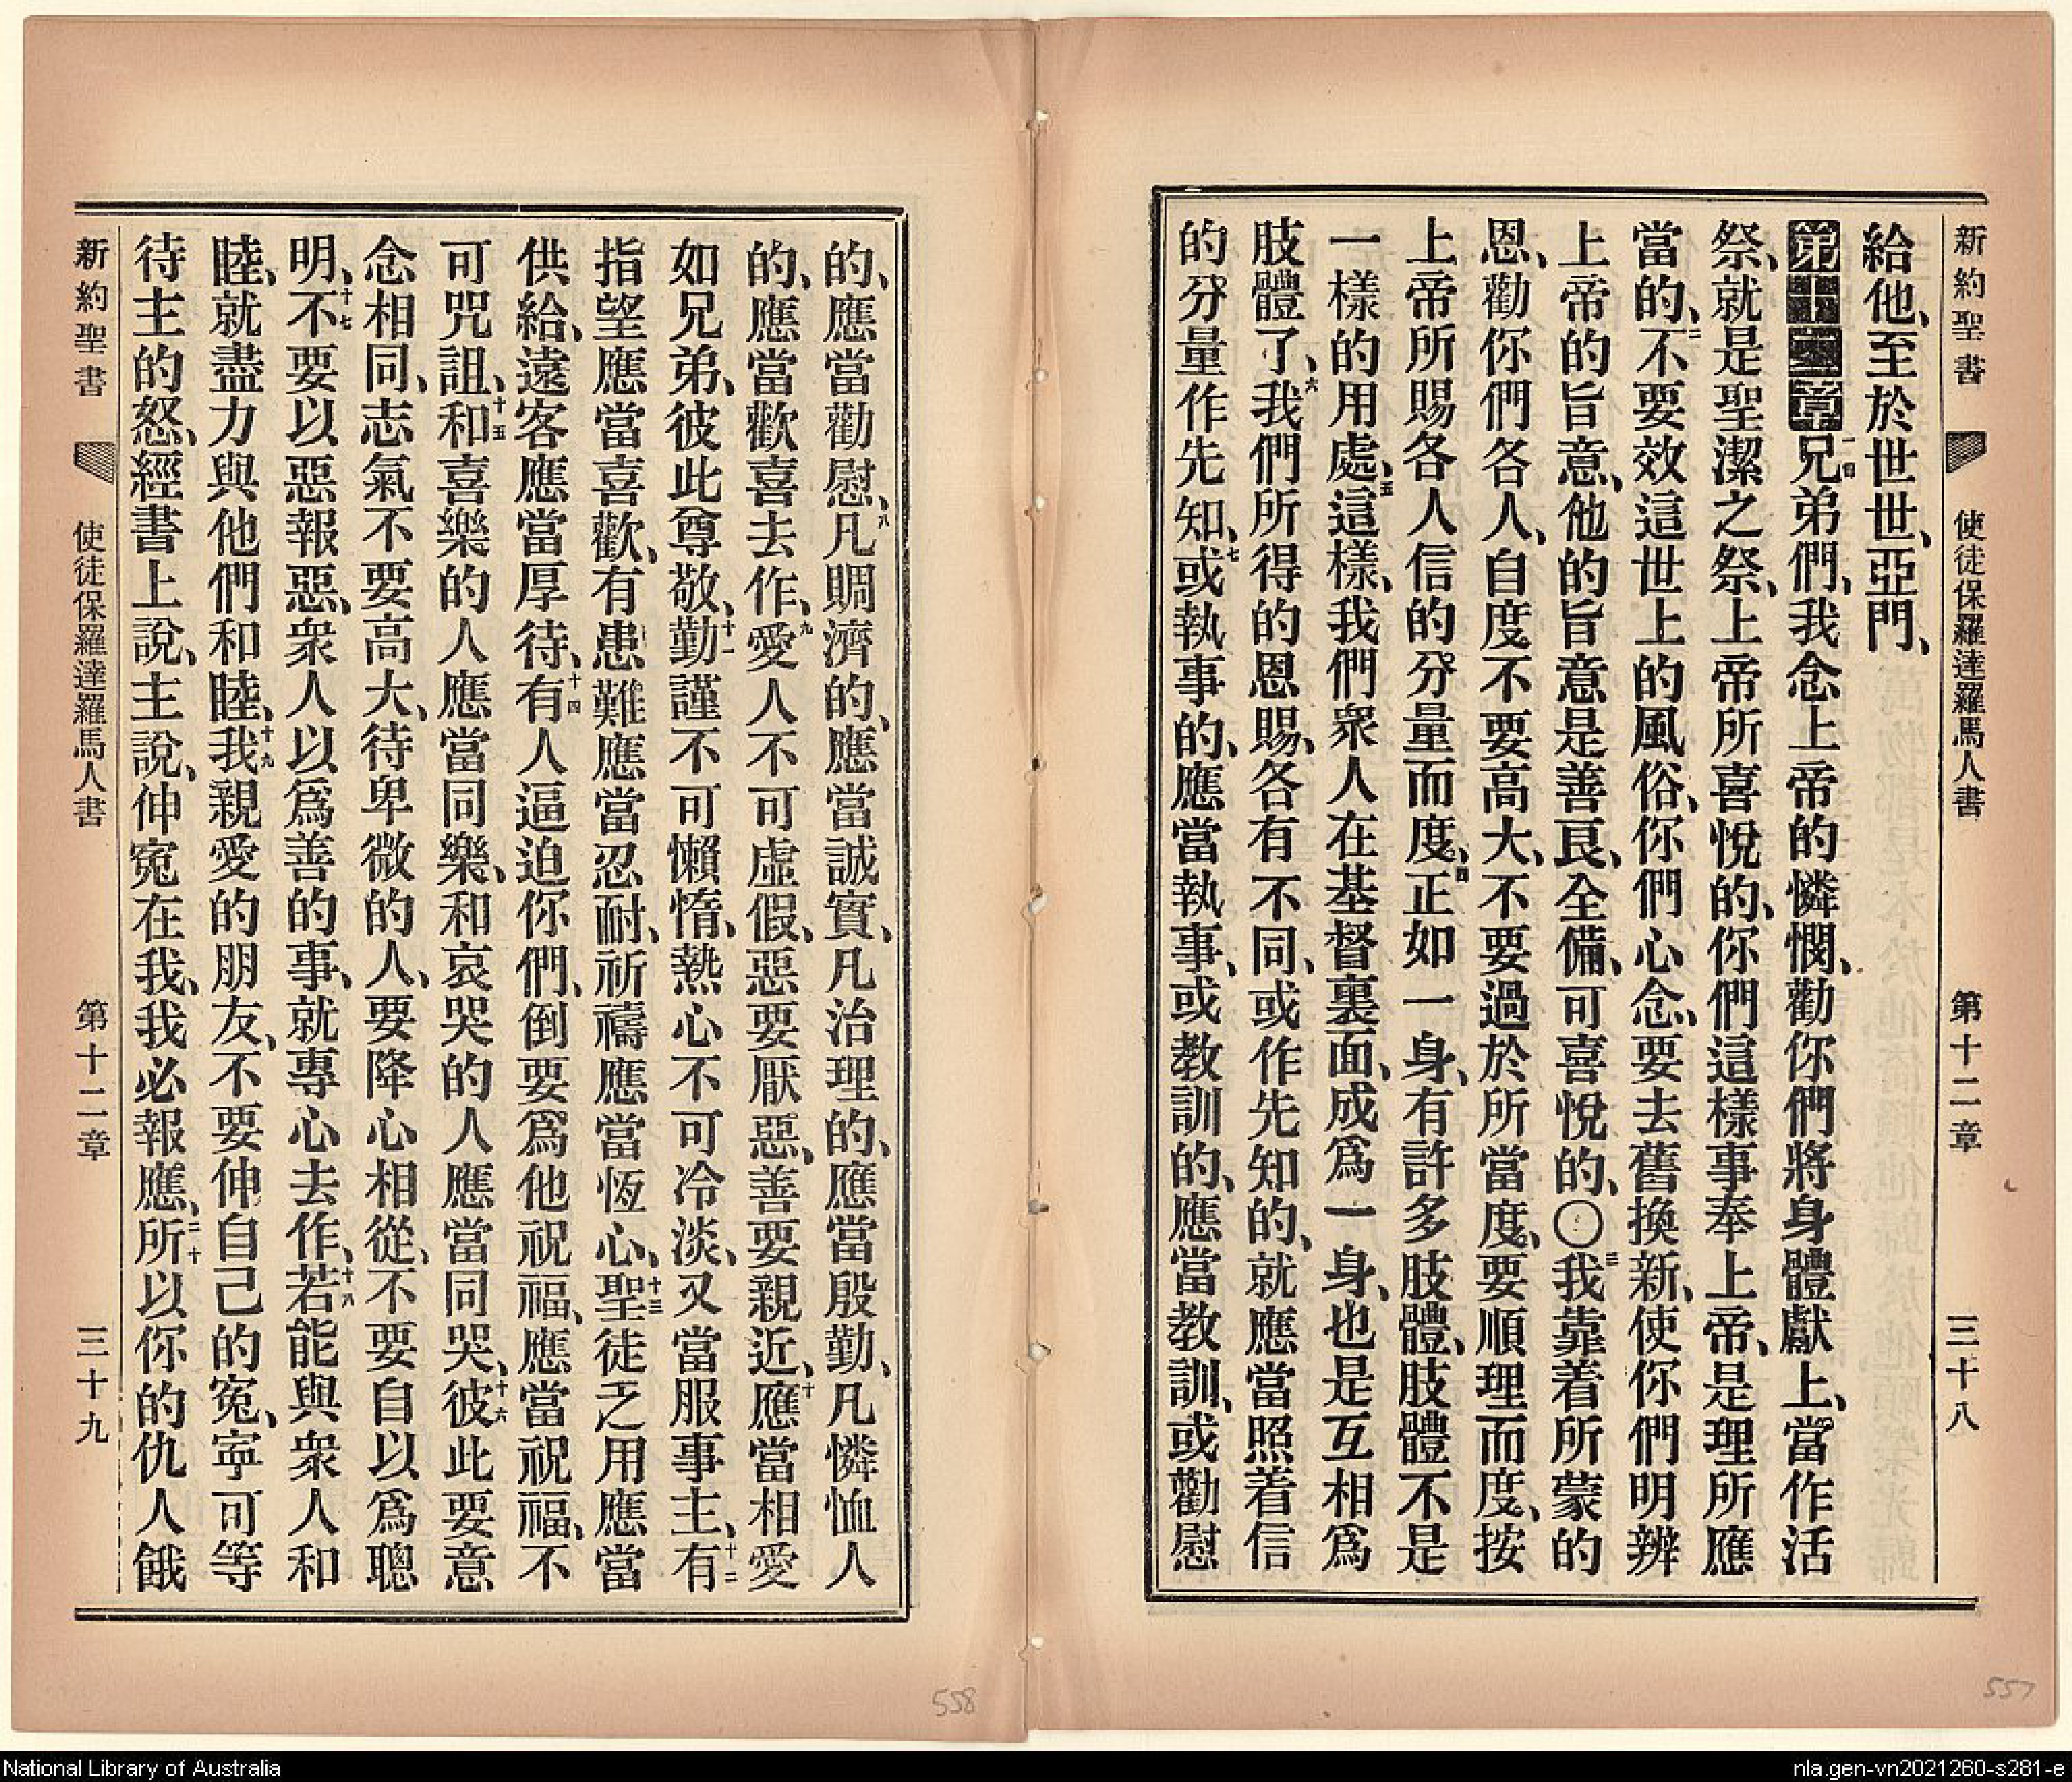 新約聖書 使徒保羅達羅馬人書 第十二章 三十八
給他、至於世世、亞門、
第十二章 一兄弟們、我念上帝的憐憫、勸你們將身體獻上、當作活
祭、就是聖潔之祭、上帝所喜悅的、你們這樣事奉上帝、是理所應
當的、二不要效這世上的風俗、你們心念、要去舊換新、使你們明辨
上帝的旨意、他的旨意是善良、全備、可喜悅的、〇三我靠着所蒙的
恩、勸你們各人、自度不要高大、不要過於所當度、要順理而度、按
上帝所賜各人信的分量而度、四正如一身、有許多肢體、肢體不是
一樣的用處、五這樣、我們衆人在基督裏面、成爲一身、也是互相爲
肢體了、六我們所得的恩賜、各有不同、或作先知的、就應當照着信
的分量作先知、七或執事的、應當執事、或教訓的、應當教訓、或勸慰
的、應當勸慰、八凡賙濟的、應當誠實、凡治理的、應當殷勤、凡憐恤人
的、應當歡喜去作、九愛人不可虛假、惡要厭惡、善要親近、十應當相愛
如兄弟、彼此尊敬、十一勤謹不可懶惰、熱心不可冷淡、又當服事主、十二有
指望應當喜歡、有患難應當忍耐、祈禱應當恆心、十三聖徒乏用應當
供給、遠客應當厚待、十四有人逼迫你們、倒要爲他祝福、應當祝福、不
可咒詛、十五和喜樂的人應當同樂、和哀哭的人應當同哭、十六彼此要意
念相同、志氣不要高大、待卑微的人、要降心相從、不要自以爲聰
明、十七不要以惡報惡、衆人以爲善的事、就專心去作、十八若能與衆人和
睦、就盡力與他們和睦、十九我親愛的朋友、不要伸自己的冤、寧可等
待主的怒、經書上說、主說、伸冤在我、我必報應、二十所以你的仇人餓
新約聖書 使徒保羅達羅馬人書 第十二章 三十九
558
557
National Library of Australia
nla.gen-vn2021260-s281-e